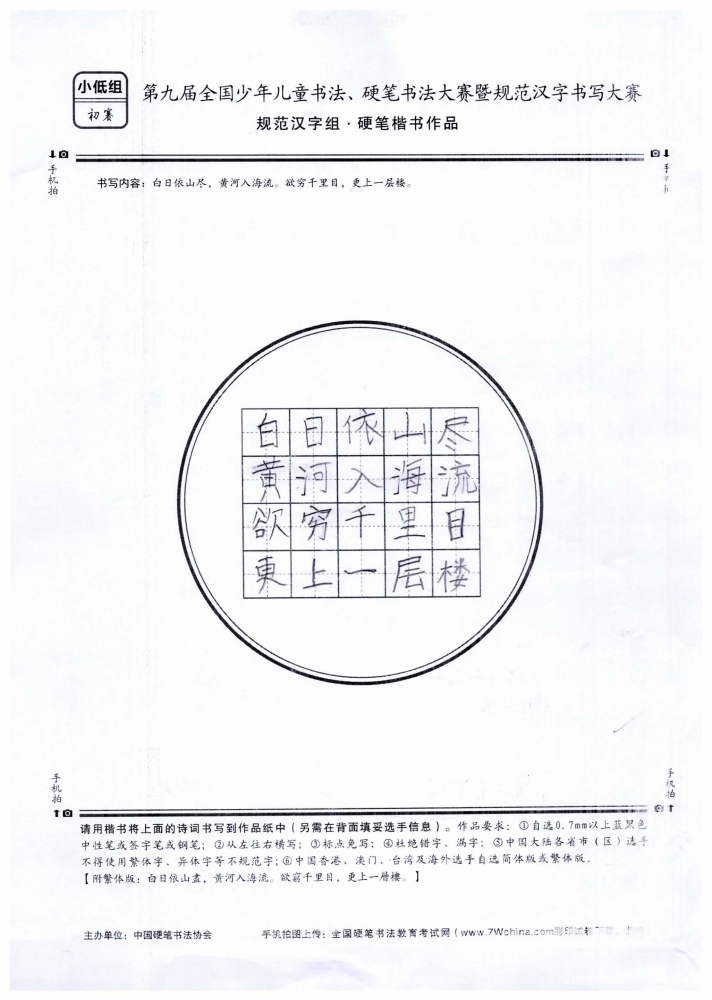 小低组
初赛
第九届全国少年儿童书法、硬笔书法大赛暨规范汉字书写大赛
规范汉字组·硬笔楷书作品
手机拍
手机拍
书写内容：白日依山尽，黄河入海流。欲穷千里目，更上一层楼。
白日依山尽
黄河入海流
欲穷千里目
更上一层楼
手机拍
手机拍
请用楷书将上面的诗词书写到作品纸中（另需在背面填妥选手信息）。作品要求：①自选0.7mm以上蓝黑色
中性笔或签字笔或钢笔；②从左往右横写；③标点免写；④杜绝错字、漏字；⑤中国大陆各省市（区）选手
不得使用繁体字、异体字等不规范字；⑥中国香港、澳门、台湾及海外选手自选简体版或繁体版。
【附繁体版：白日依山盡，黄河入海流。欲窮千里目，更上一層樓。】
主办单位：中国硬笔书法协会
手机拍图上传：全国硬笔书法教育考试网（www.7Wchina.com形印试卷下载